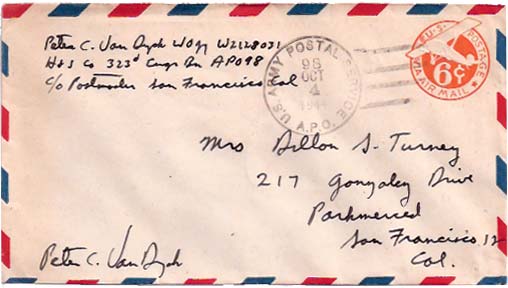 Peter C. Van Dyck WOJG W2128031
H+S Co 323d Engr Bn APO 98
c/o Postmaster San Francisco, Cal
U.S. ARMY POSTAL SERVICE
98
OCT
4
1944
A.P.O.
U.S. POSTAGE
6¢
VIA AIR MAIL
Mrs Dillon S. Turney
217 Gonzalez Drive
Parkmerced
San Francisco, 12
Cal.
Peter C. Van Dyck